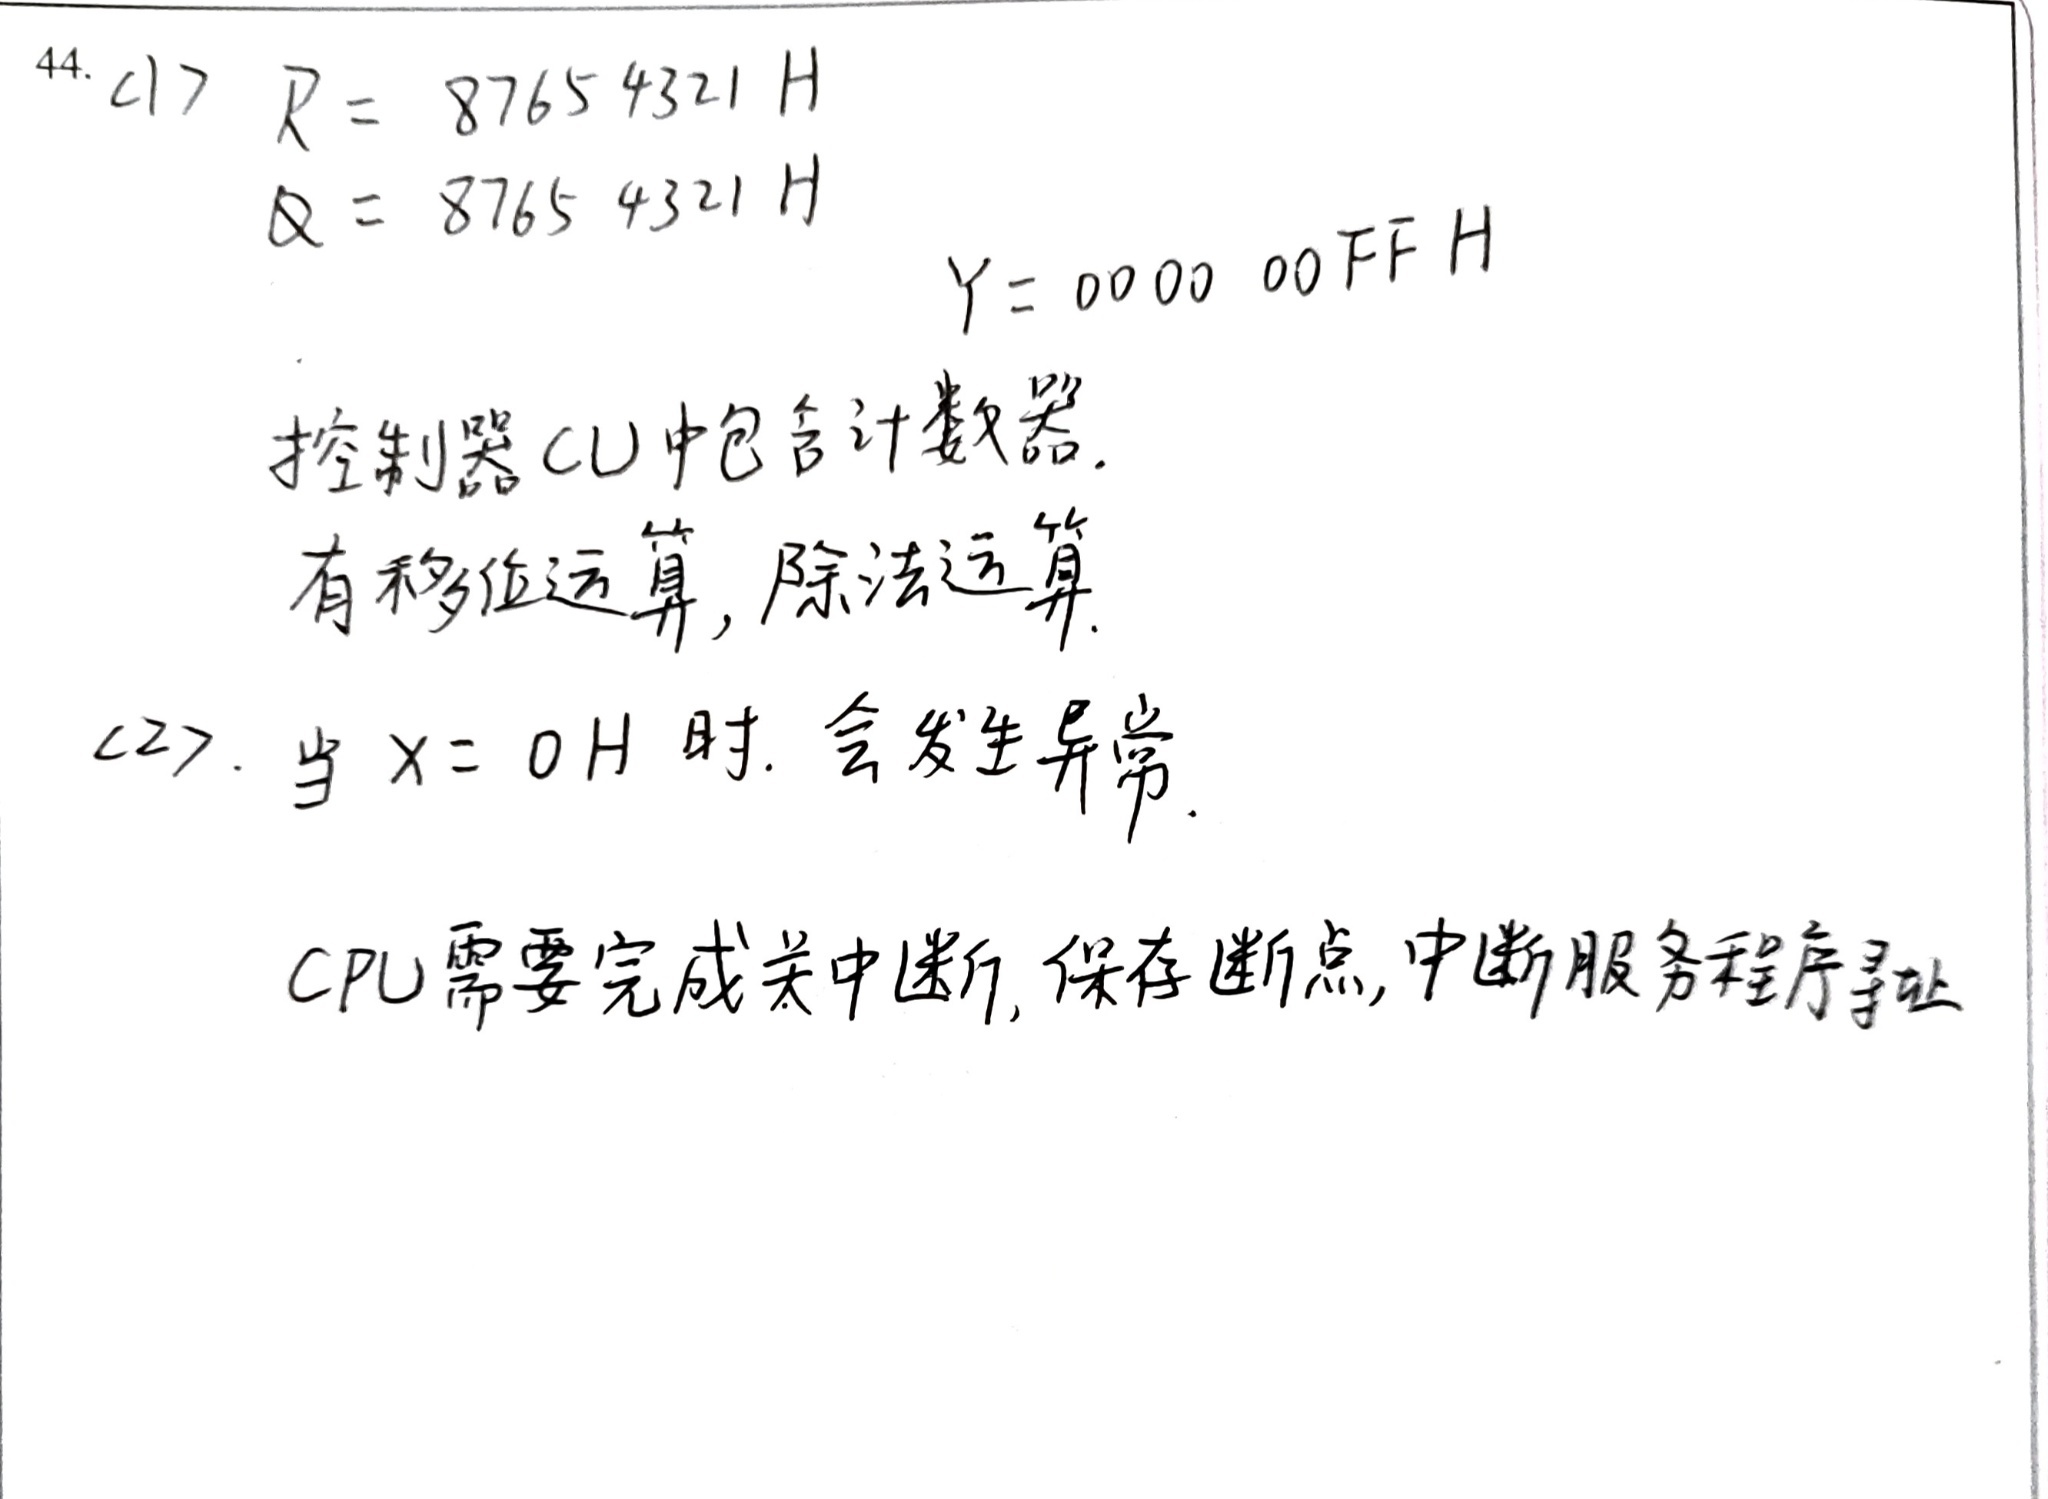 44. <1> R = 8765 4321 H
Q = 8765 4321 H
Y = 0000 00FF H
控制器CU中包含计数器.
有移位运算,除法运算.
<2>. 当 X = 0H 时. 会发生异常.
CPU需要完成关中断,保存断点,中断服务程序寻址